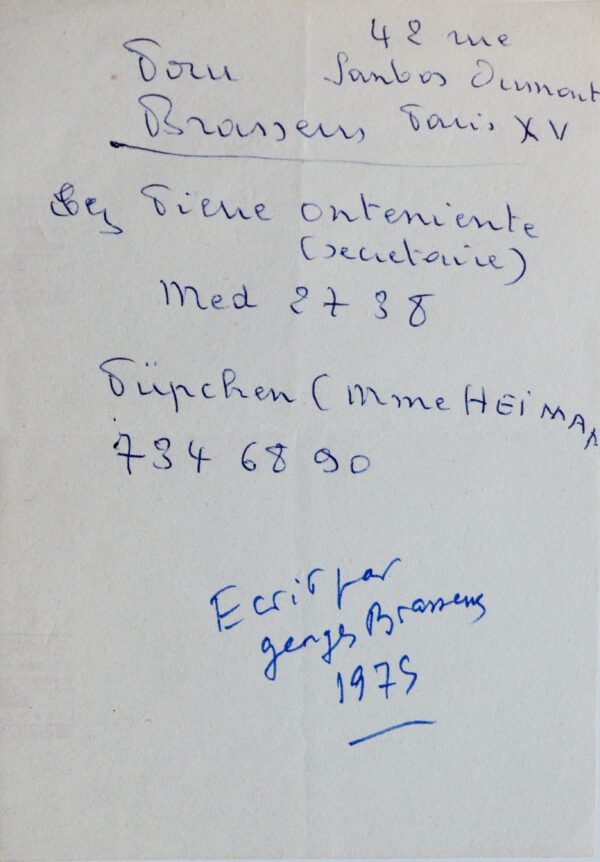 42 rue
Pour Santos Dumont
Brassens Paris XV
Pierre Onteniente
(secretaire)
Med 27 38
Püpchen (Mme HEIMAN
734 68 90
Ecrit par
georges Brassens
1975